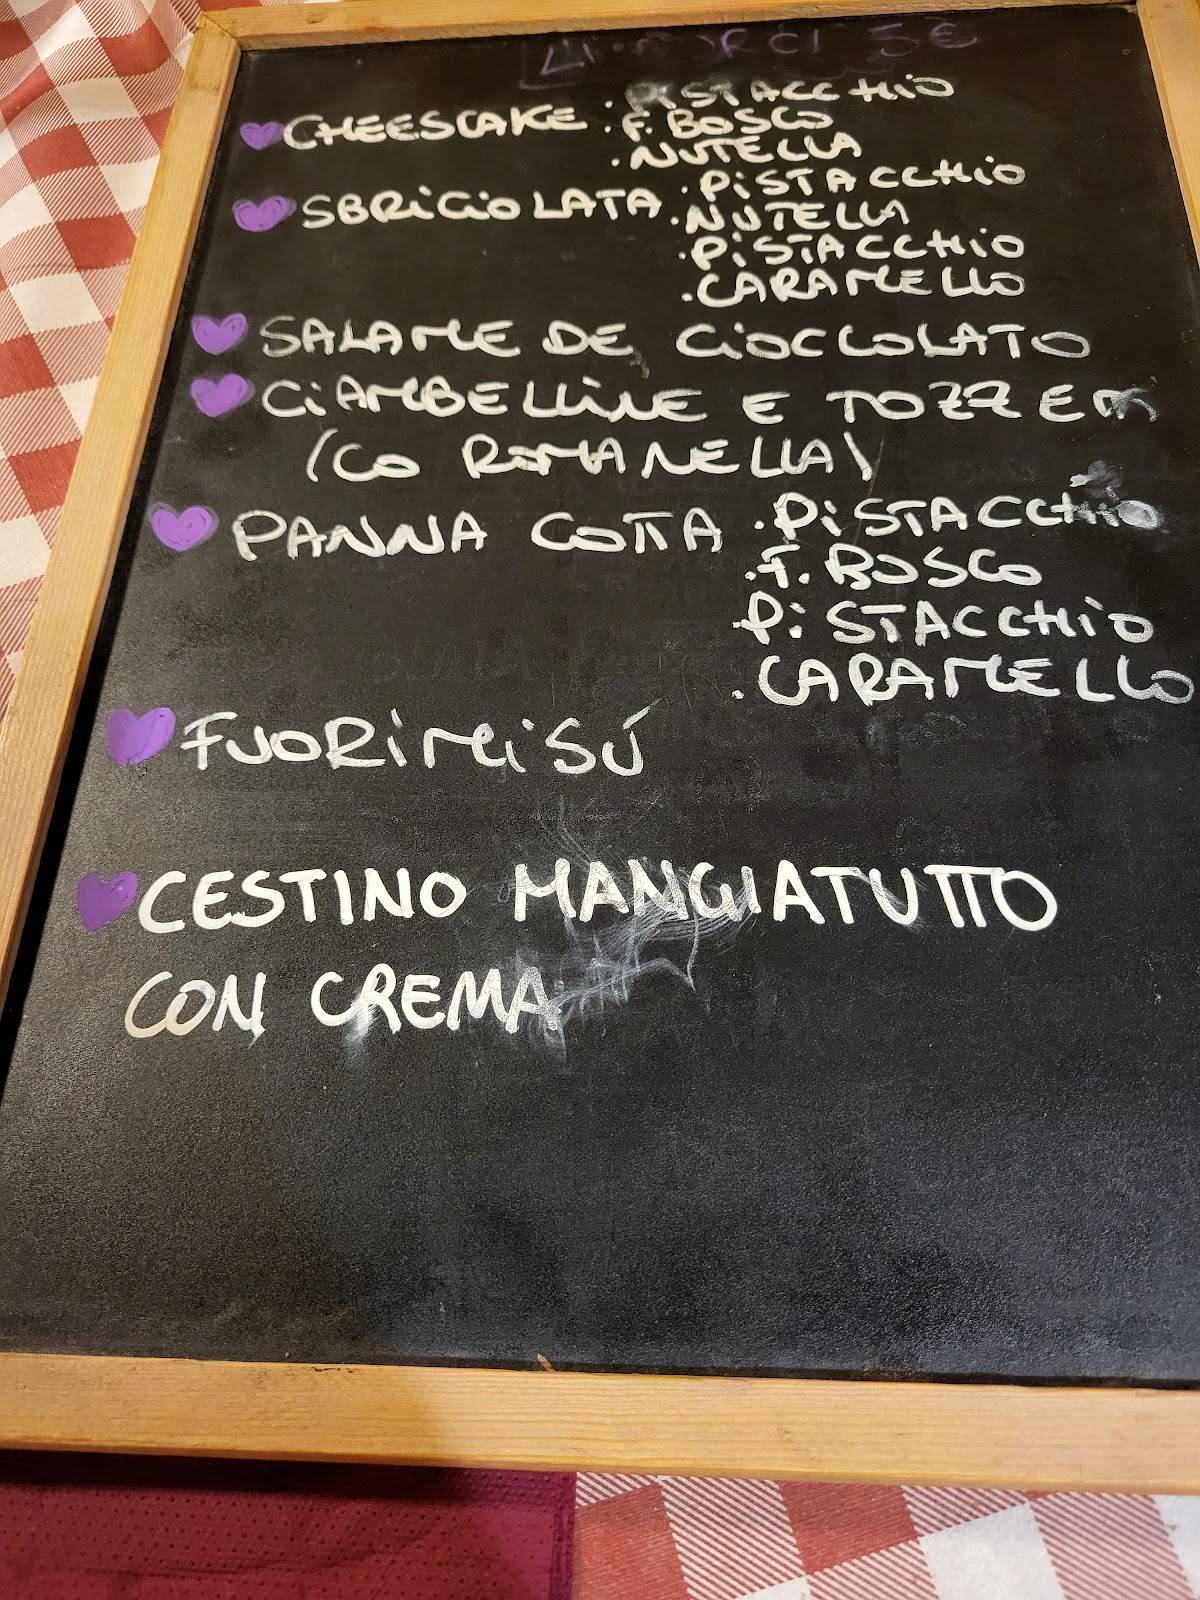 5€
CHEESCAKE . PISTACCHIO
. F. BOSCO
. NUTELLA
SBRICIOLATA . PISTACCHIO
. NUTELLA
. PISTACCHIO
. CARAMELLO
SALAME DE CIOCCOLATO
CIAMBELLINE E TOZZETTI
(CO ROMANELLA)
PANNA COTTA . PISTACCHIO
. F. BOSCO
PISTACCHIO
. CARAMELLO
FUORIMISÚ
CESTINO MANGIATUTTO
CON CREMA